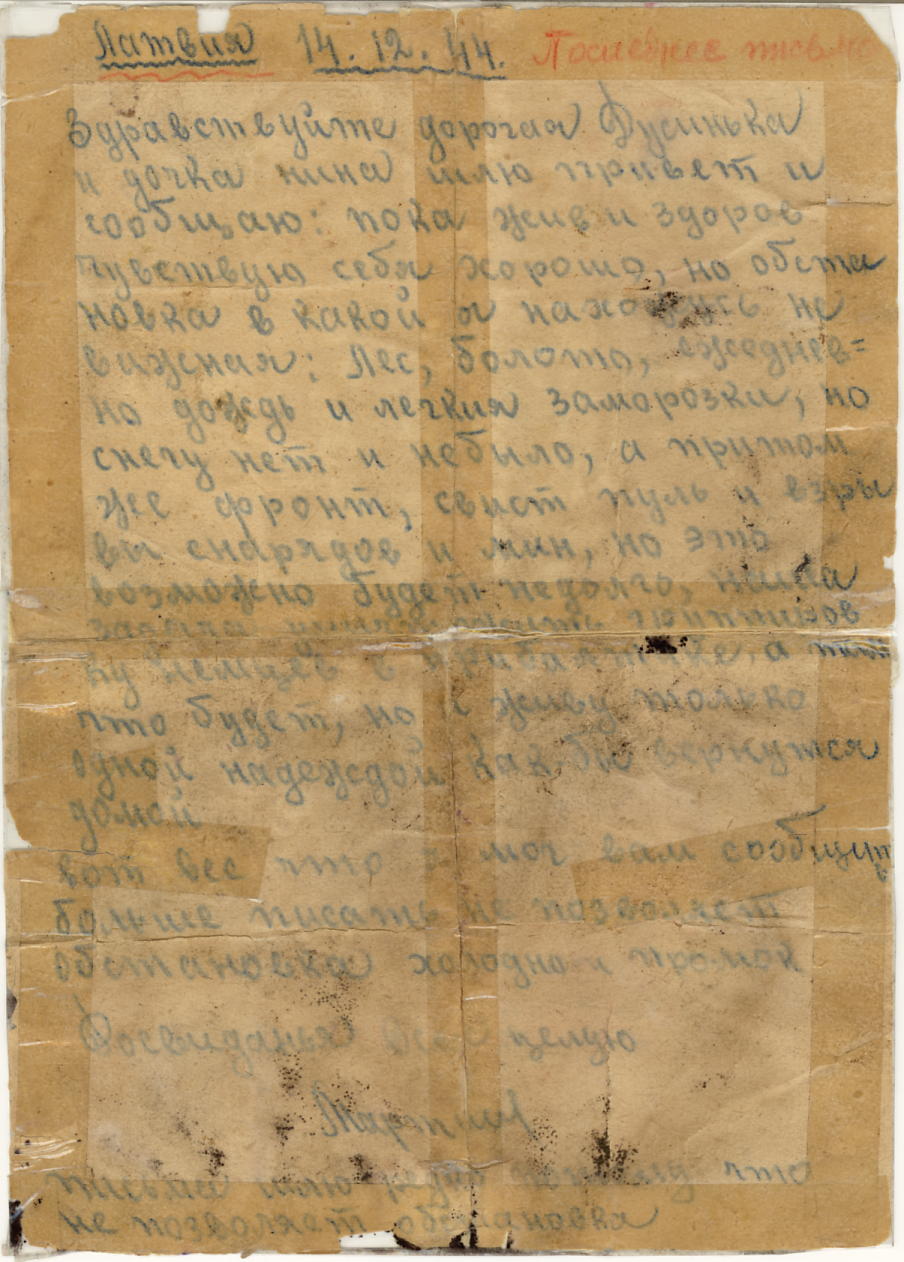 Латвия 14.12.44. Последнее письмо
Здравствуйте дорогая Дусинька
и дочка нина шлю привет и
сообщаю: пока жив и здоров
чувствую себя хорошо, но обста
новка в какой я нахожусь не
важная: Лес, болото, ежеднев=
но дождь и легкия заморозки, но
снегу нет и небыло, а притом
же фронт, свист пуль и взры
вы снарядов и мин, но это
возможно будет недолго, наша
задача уничтожить групиров
ку немцев в прибалтике, а там
что будет, но я живу только
одной надеждой как бы вернутся
домой
вот вес что я мог вам сообщит
ь
больше писать не позволяет
обстановка холодно и промок
Досвиданья Всех целую
Мартыш
письма шлю редко потому что
не позволяет обстановка